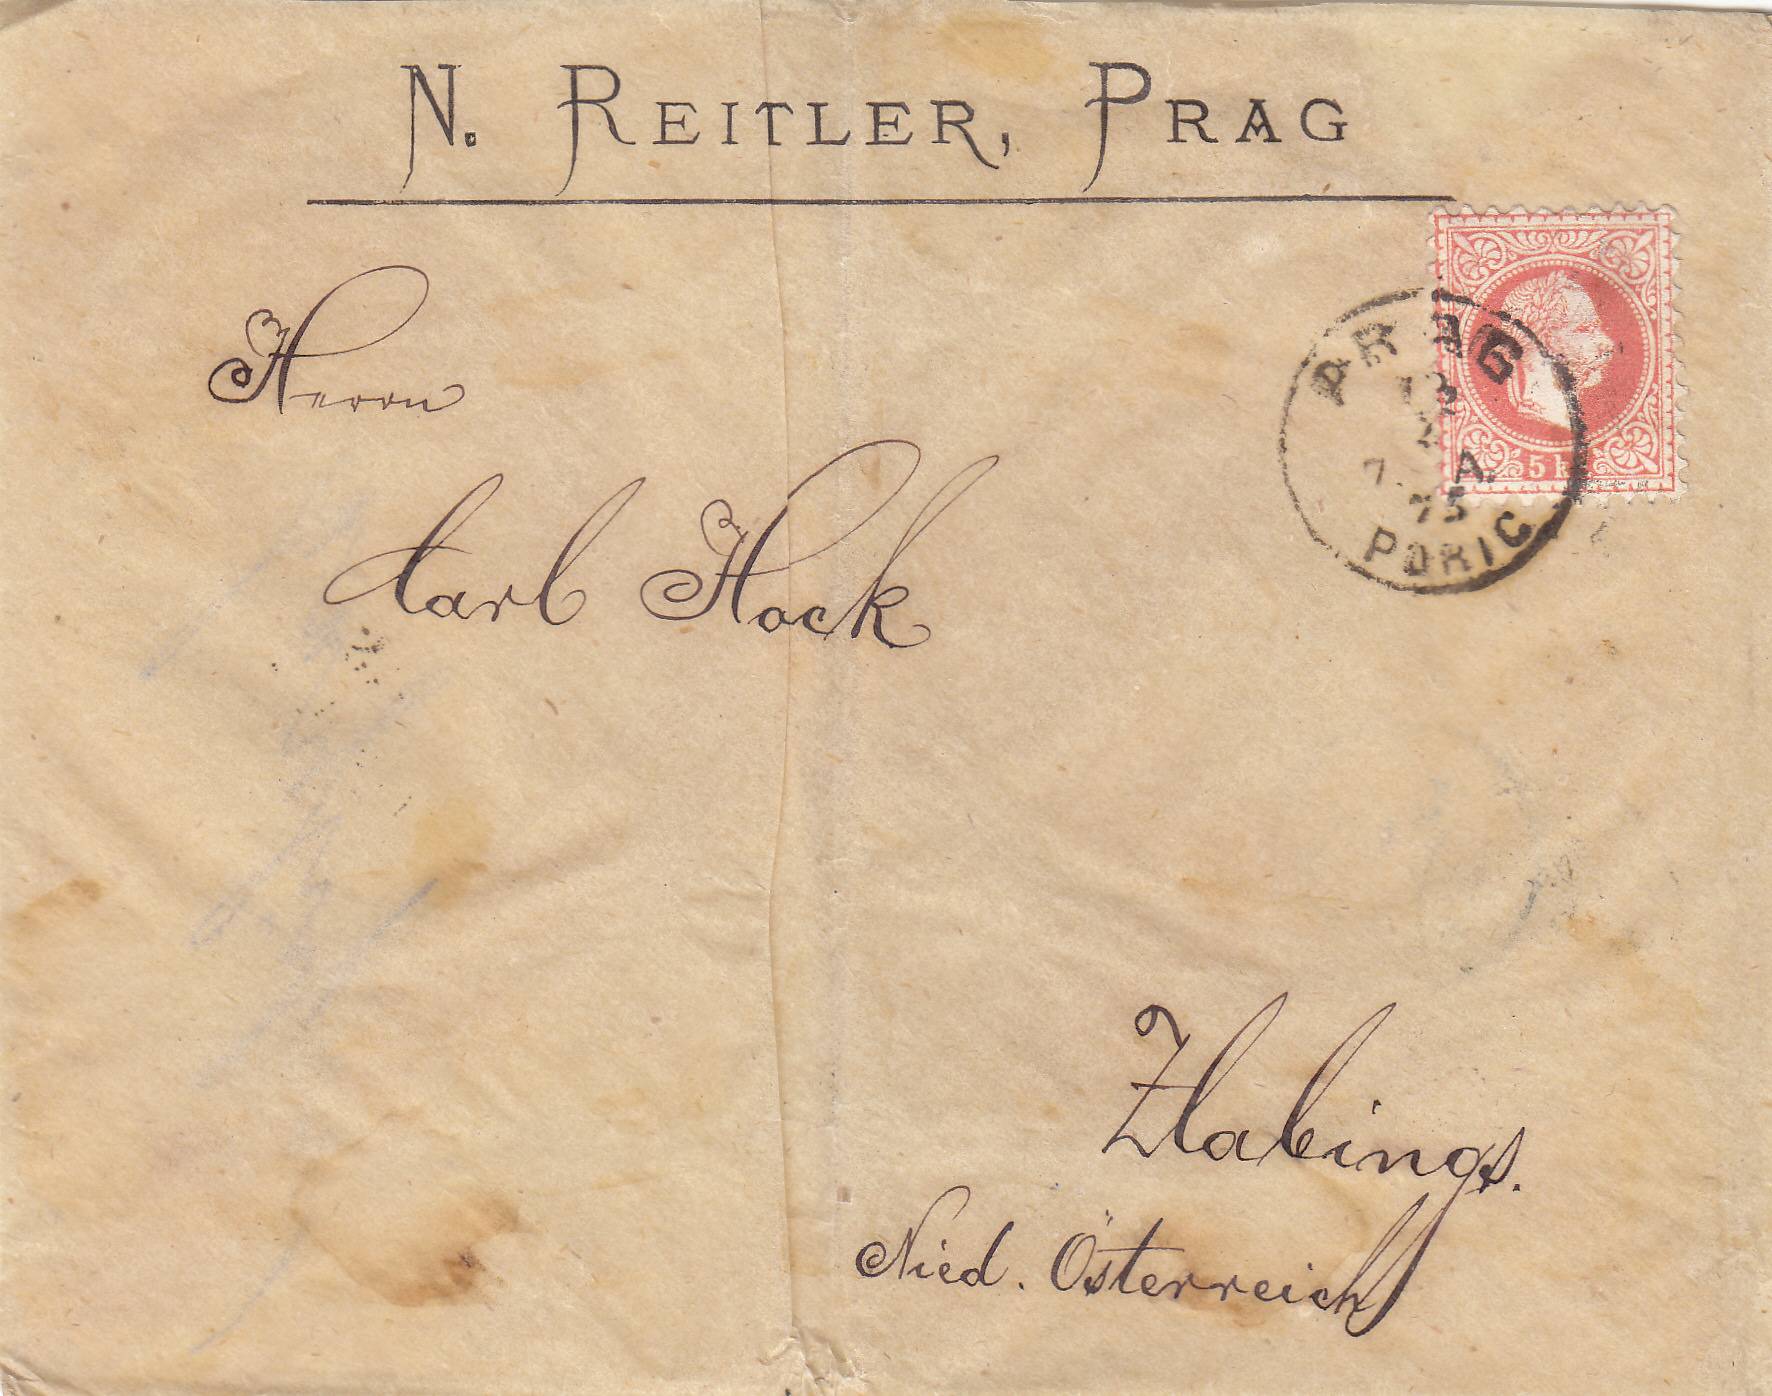 N. REITLER, PRAG
Herrn
Carl Hock
5 k
PRAG
7. A.
75
PORIC
Zlabings.
Nied. Österreich